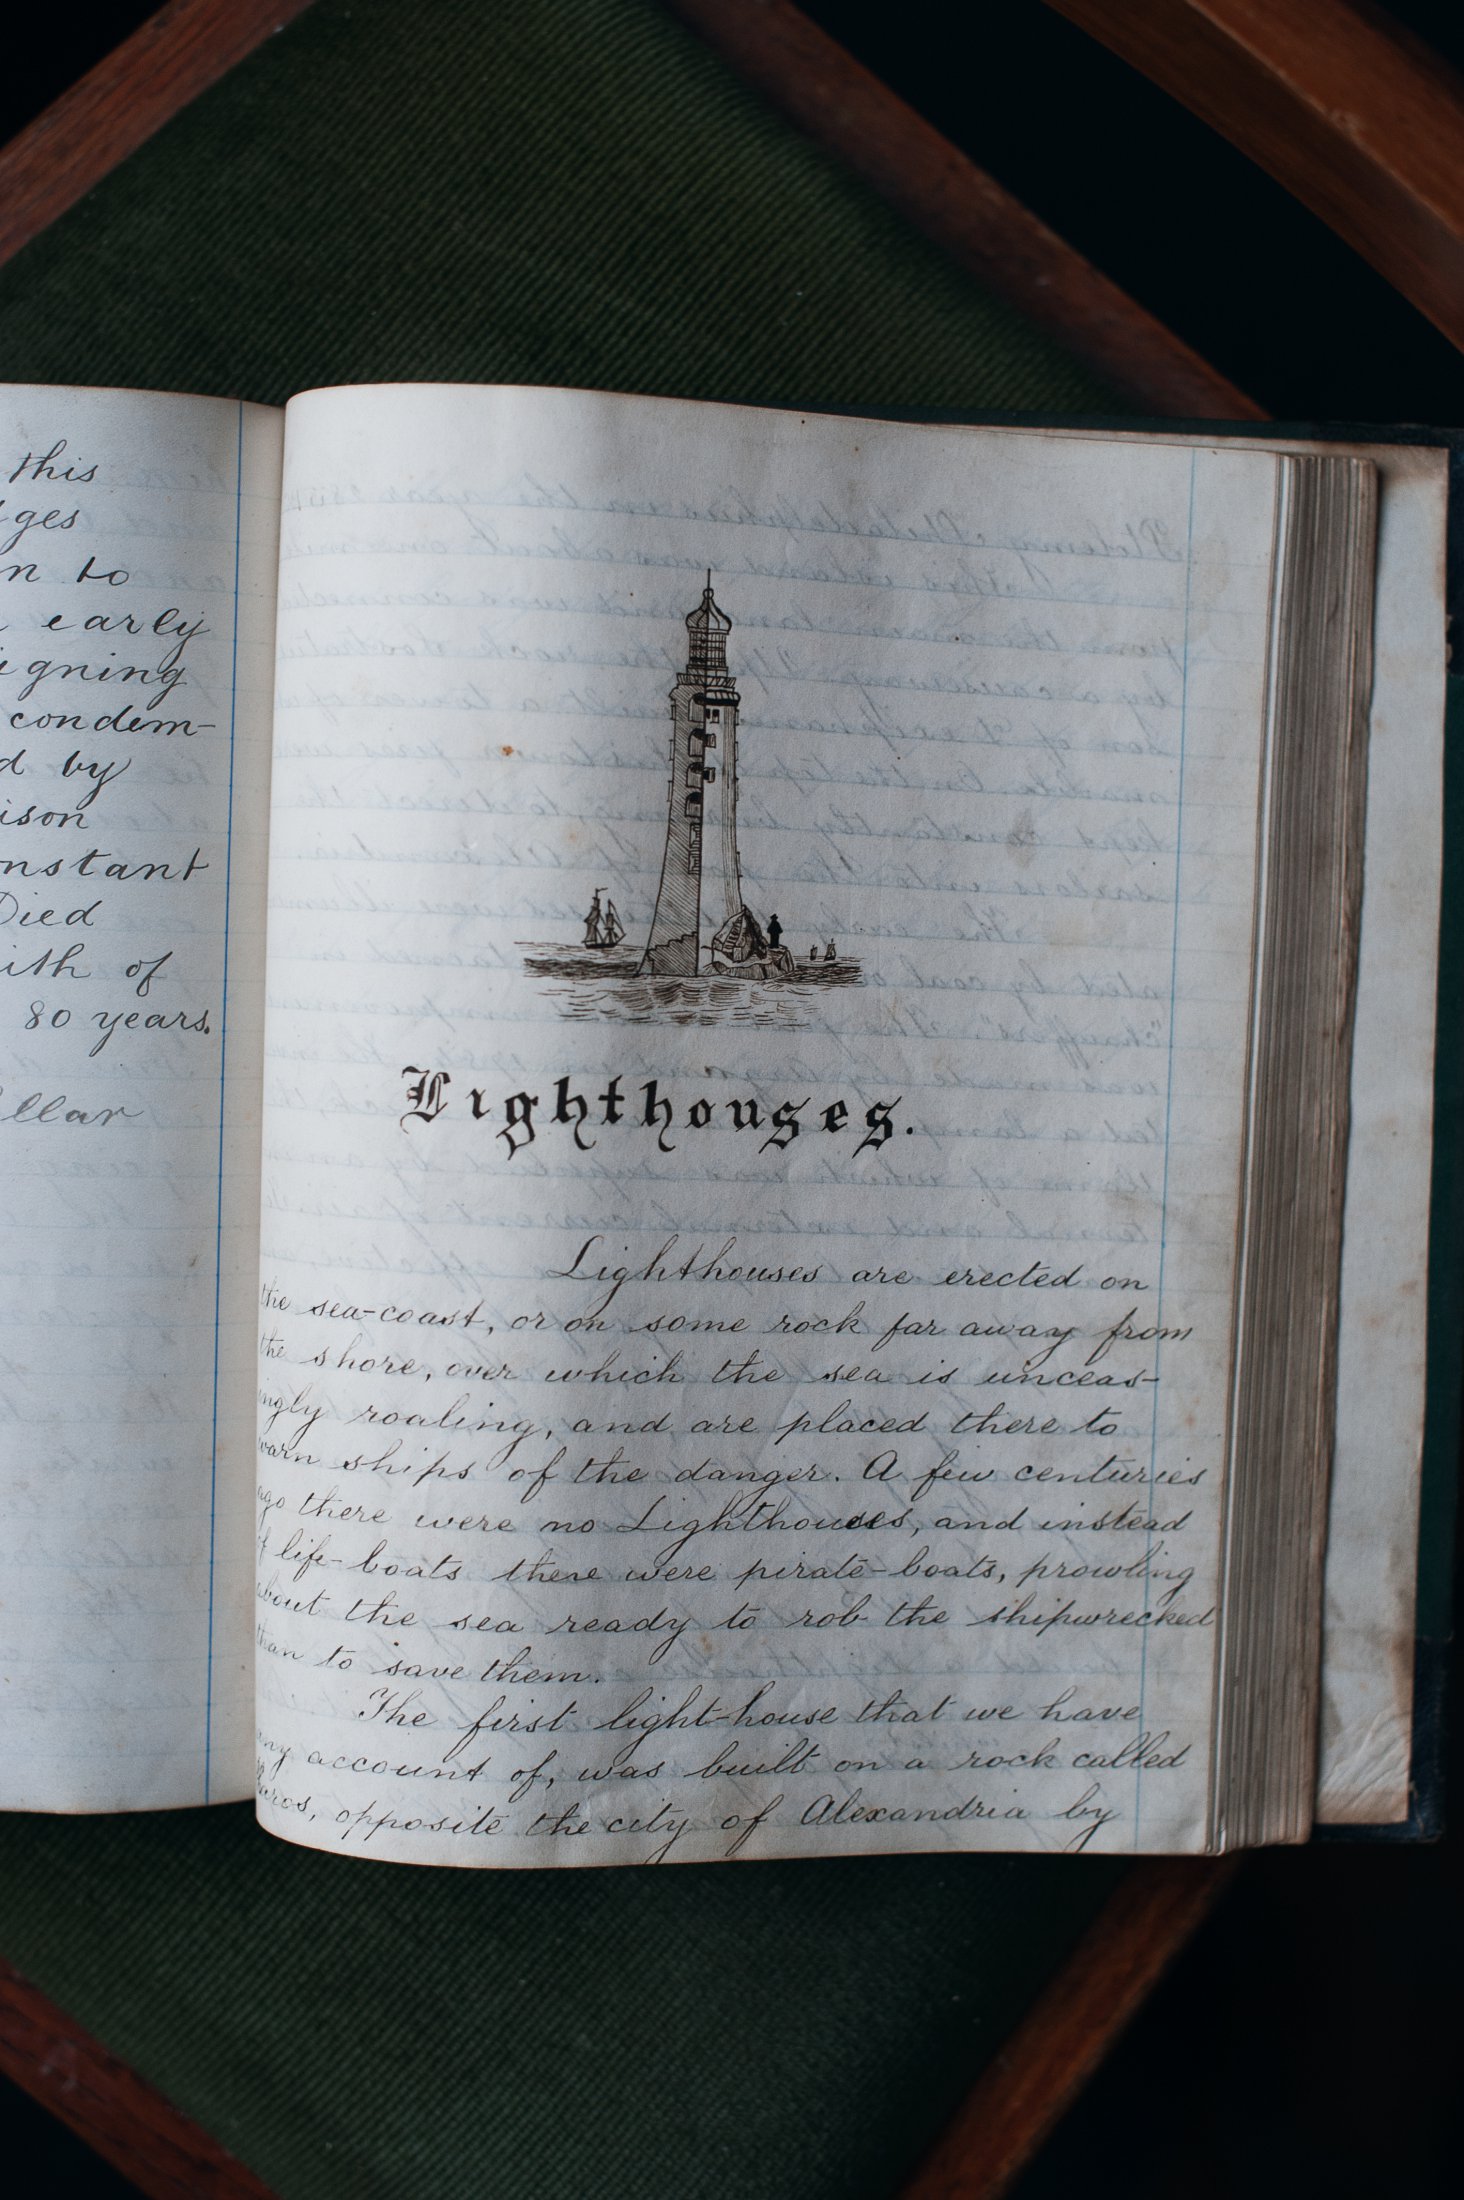 this
ges
n to
early
igning
condem-
d by
ison
onstant
Died
ith of
80 years.
ellar
Lighthouses.
Lighthouses are erected on
the sea-coast, or on some rock far away from
the shore, over which the sea is unceas-
ingly roaling, and are placed there to
warn ships of the danger. A few centuries
ago there were no Lighthouses, and instead
of life-boats there were pirate-boats, prowling
about the sea ready to rob the shipwrecked
than to save them.
The first light-house that we have
any account of, was built on a rock called
opposite the city of Alexandria by